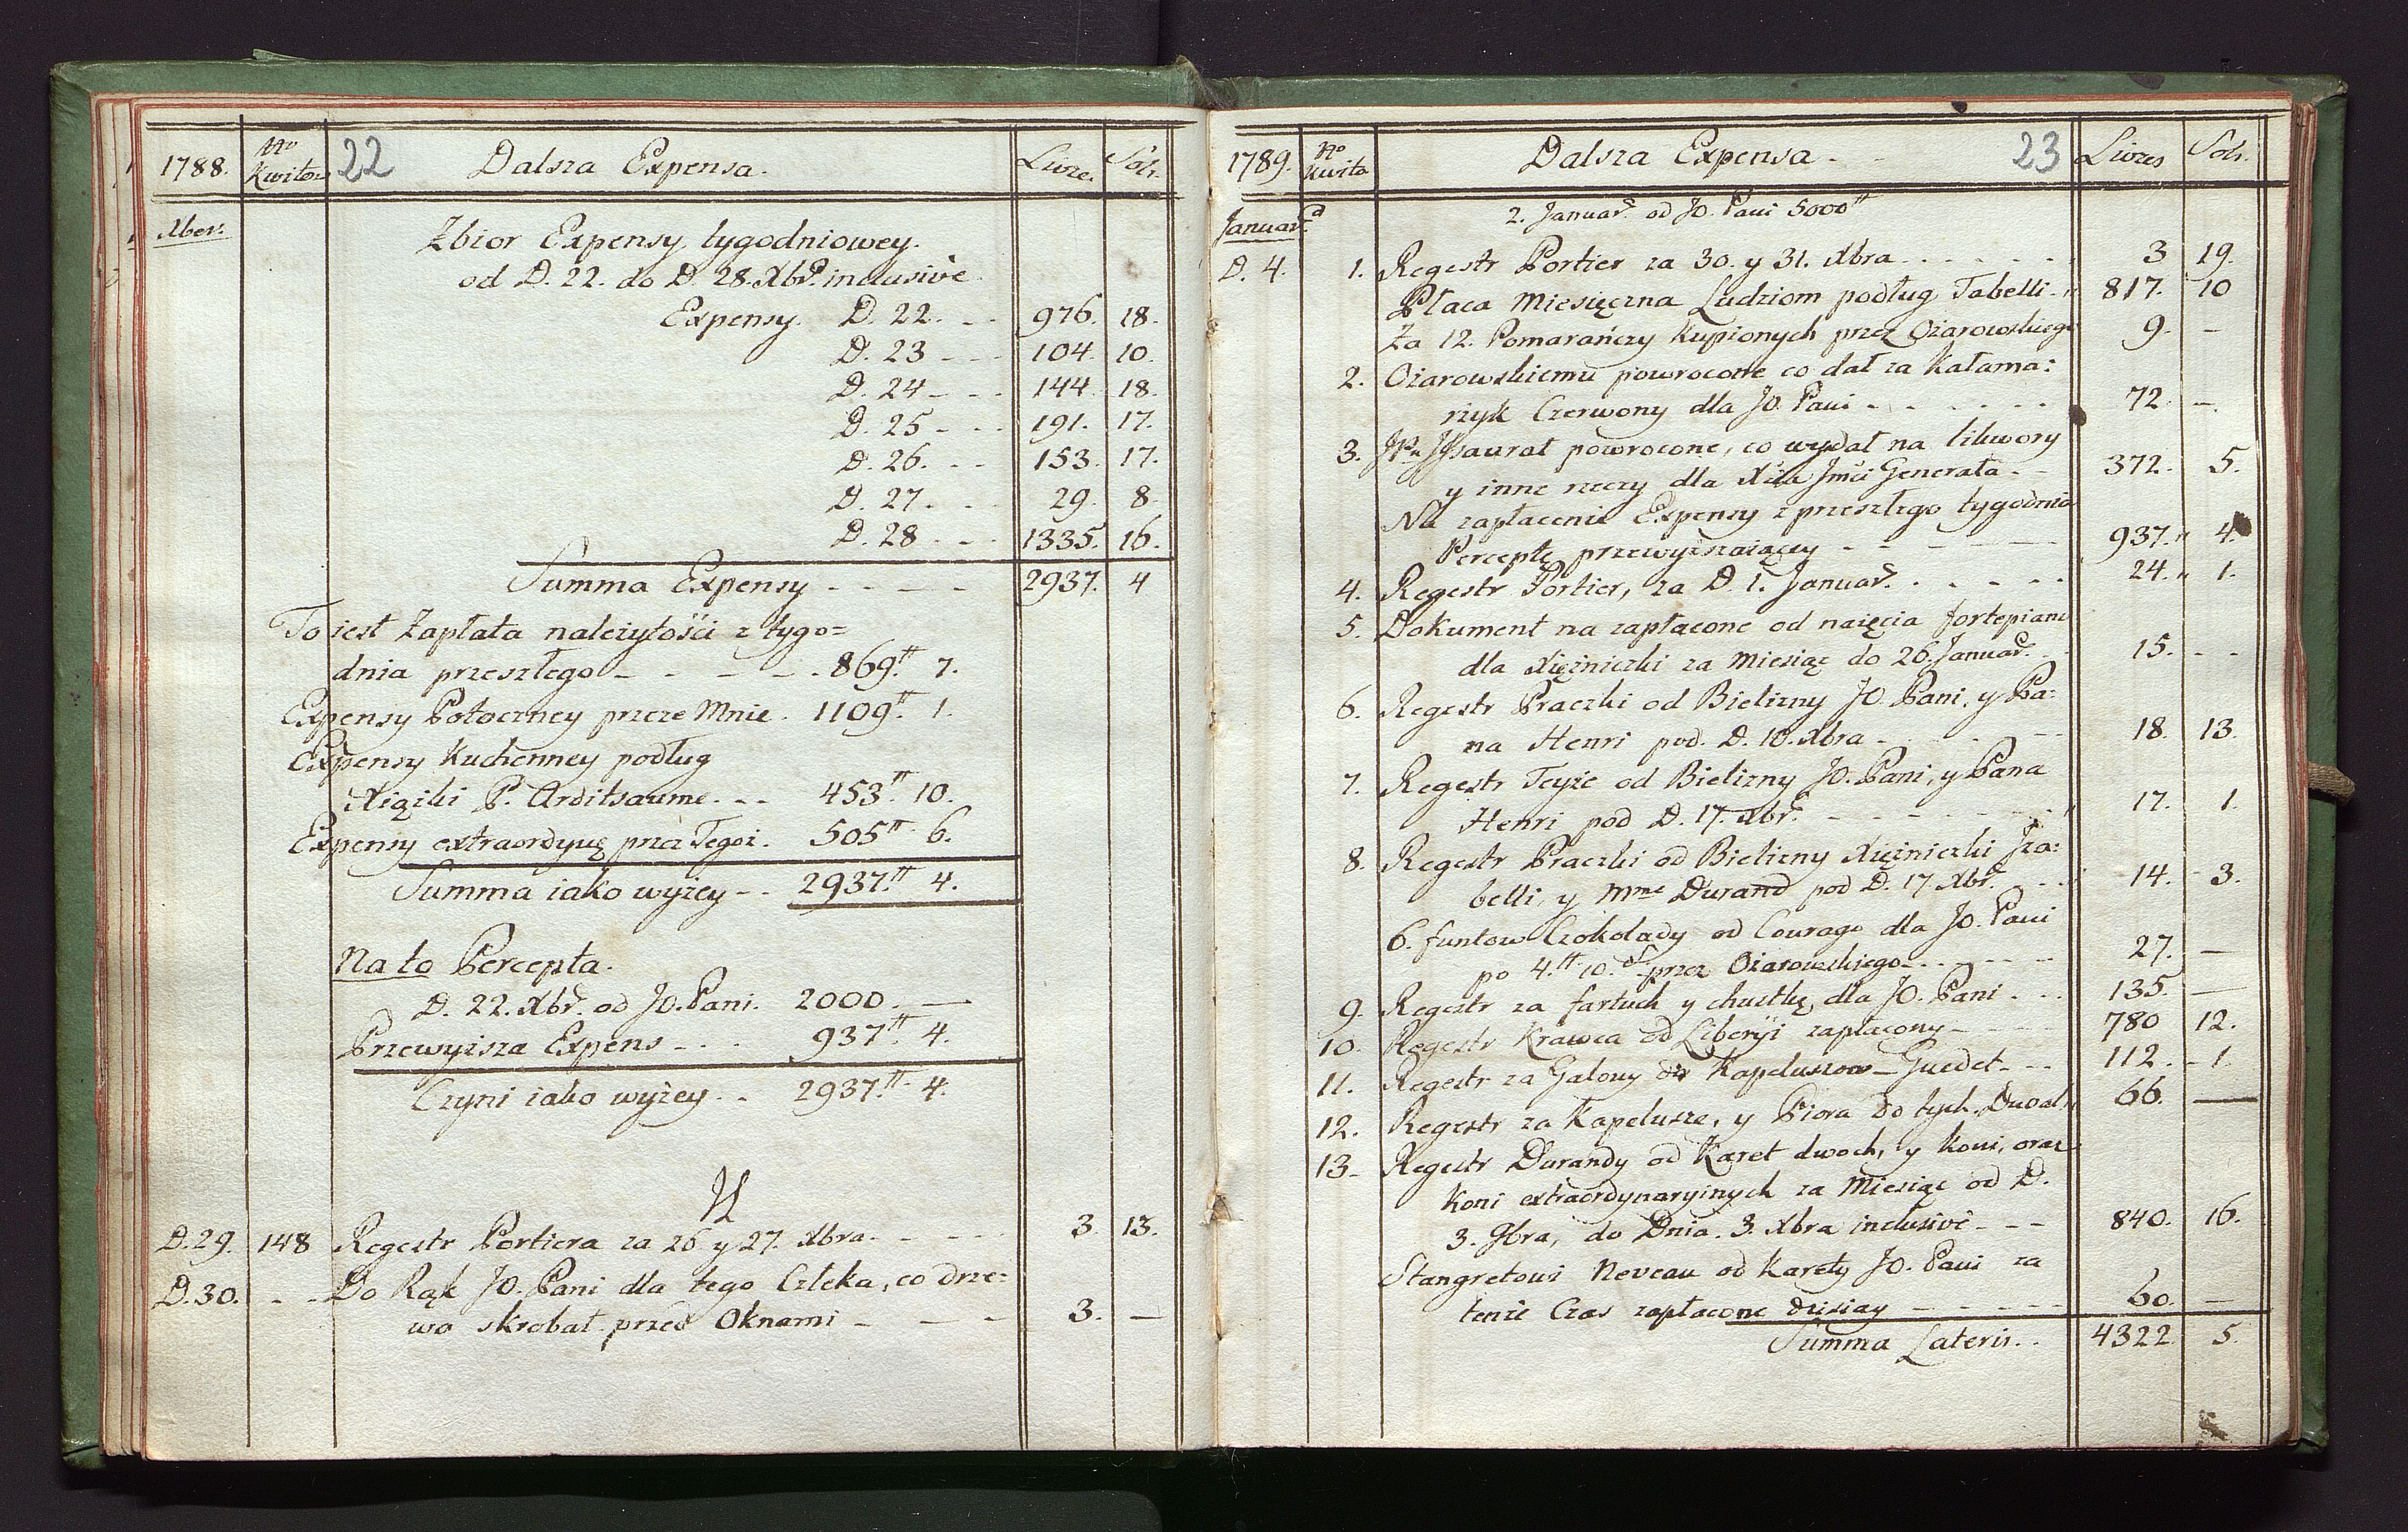 1788. No Kwitow 22 Dalsza Expensa. Livre. Sols.
Xber:
Zbior Expensy tygodniowey.
od D. 22. do D. 28. Xbr. inclusive
Expensy. D. 22. 976. 18.
D. 23 104. 10.
D. 24 144. 18.
D. 25 191. 17.
D. 26. 153. 17.
D. 27 29. 8.
D. 28 1335. 16.
Summa Expensy 2937. 4
To iest Zapłata należytości z tygo=
dnia przeszłego 869.tt 7.
Expensy Potoczney przeze Mnie. 1109.tt 1.
Expensy Kuchenney podług
Xiążki P. Arditsaume. 453.tt 10.
Expensy extraordyną przez Tegoż. 505.tt 6.
Summa iako wyżey 2937.tt 4.
Na to Percepta.
D. 22. Xbr. od JO. Pani. 2000. —
Przewyzsza Expens 937.tt 4.
Czyni iako wyżey 2937.tt 4.
D. 29. 148 Regestr Portiera za 26 y 27. Xbra. 3. 13.
D. 30. Do Rąk JO. Pani dla tego Człeka, co drze=
wo skrobał przed Oknami 3. —
1789. No Kwito Dalsza Expensa. 23 Livres Sols.
Januar. 2. Januar. od JO. Pani 5000tt
D. 4. 1. Regestr Portier za 30. y 31. Xbra 3 19.
Płaca Miesięczna Ludziom podług Tabelli 817. 10
Za 12. Pomarańczy Kupionych przez Ożarowskiego 9. —
2. Ożarowskiemu powrocone co dał za Kałama=
rzyk Czerwony dla JO. Pani 72 —.
3. JPu Jssaurat powrocone, co wydał na likwory
y inne rzeczy dla Xcia Jmći Generała 372. 5.
Na zapłacenie Expensy z przeszłego tygodnia
Perceptę przewyższaiącey 937. 4.
4. Regestr Portier, za D. 1. Januar. 24. 1.
5. Dokument na zapłacone od naięcia fortepiano
dla Xiężniczki za Miesiąc do 26. Januar. 15. -
6. Regestr Praczki od Bielizny JO. Pani, y Pa=
na Henri pod. D. 10. Xbra 18. 13.
7. Regestr Teyże od Bielizny JO. Pani, y Pana
Henri pod D. 17. Xbr. 17. 1.
8. Regestr Praczki od Bielizny Xiężniczki Jza=
belli, y Mme Durand pod D. 17. Xbr. 14. 3.
6. funtow Czokolady od Courago dla JO. Pani
po 4.tt 10.s przez Ożarowskiego 27. —
9. Regestr za fartuch y chustkę dla JO. Pani 135. —
10. Regestr Krawca od Liberyi zapłacony 780 12.
11. Regestr za Galony do Kapeluszow Guedet 112. 1.
12. Regestr za Kapelusze, y Piora do tych. Duval 66. —
13. Regestr Durandy od Karet dwoch, y koni, oraz
koni extraordynaryinych za Miesiąc od D.
3. 9bra, do Dnia. 3. Xbra inclusive 840. 16.
Stangretowi Neveau od Karety JO. Pani za
tenże Czas zapłacone dzisiay 60. —
Summa Lateris. 4322. 5.